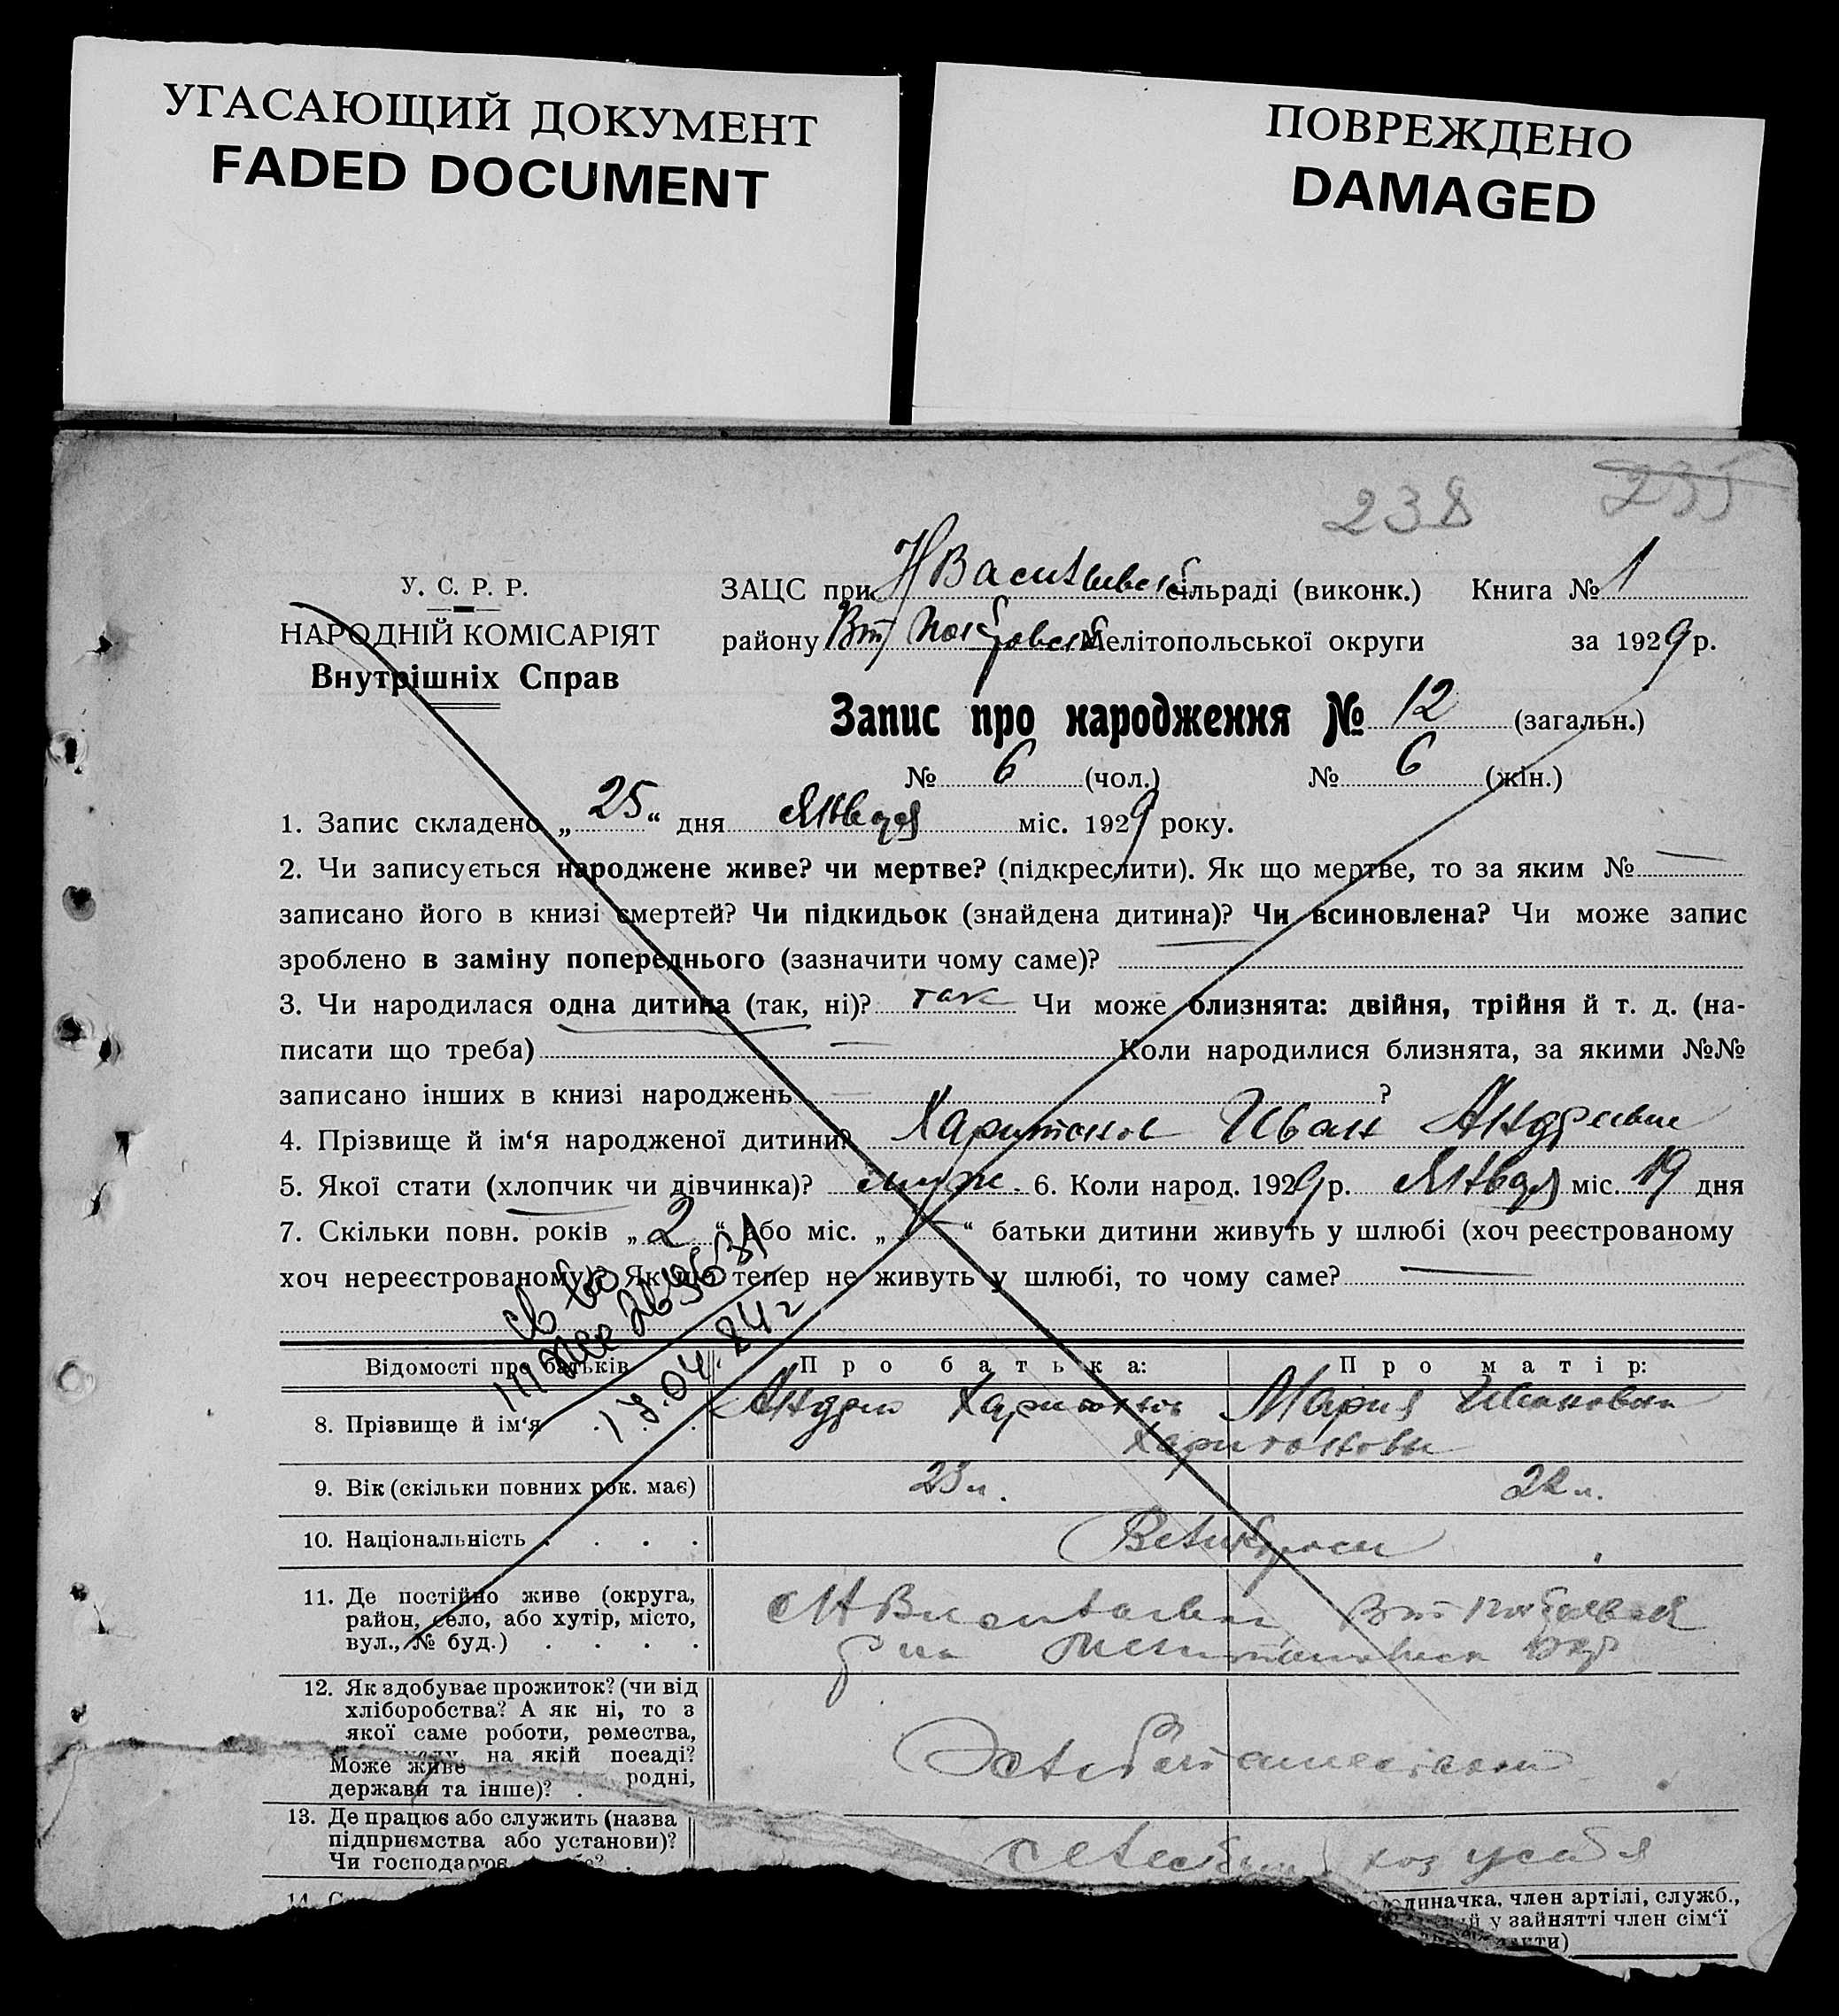 УГАСАЮЩИЙ ДОКУМЕНТ
FADED DOCUMENT
ПОВРЕЖДЕНО
DAMAGED
238 235
У. С. Р. Р.
НАРОДНІЙ КОМІСАРІЯТ
Внутрішніх Справ
ЗАЦС при Н Васильевск сільраді (виконк.) Книга № 1
району Мелітопольської округи за 1929 р.
Запис про народження № 12 (загальн.)
№ 6 (чол.) № 6 (жін.)
1. Запис складено „25“ дня Января міс. 1929 року.
2. Чи записується народжене живе? чи мертве? (підкреслити). Як що мертве, то за яким № —
записано його в книзі смертей? Чи підкидьок (знайдена дитина)? Чи всиновлена? Чи може запис
зроблено в заміну попереднього (зазначити чому саме)? —
3. Чи народилася одна дитина (так, ні)? так Чи може близнята: двійня, трійня й т. д. (на-
писати що треба) — Коли народилися близнята, за якими №№
записано інших в книзі народжень — ?
4. Прізвище й ім‘я народженої дитини? Харитонов Иван Андреевич
5. Якої стати (хлопчик чи дівчинка)? муж. 6. Коли народ. 1929 р. Января міс. 19 дня
7. Скільки повн. років „2“ або міс. „—“ батьки дитини живуть у шлюбі (хоч реєстрованому
хоч нереєстрованому)? Як що тепер не живуть у шлюбі, то чому саме? —
св во
17.04.84 г
Відомості про батьків Про батька: Про матір:
8. Прізвище й ім‘я . . . Андрей Харитонов Мария Ивановна
Харитоновы
9. Вік (скільки повних рок. має) 23 л. 22 л.
10. Національність . . . . Великороси
11. Де постійно живе (округа,
район, село, або хутір, місто,
вул., № буд.) . . . .
12. Як здобуває прожиток? (чи від
хліборобства? А як ні, то з
якої саме роботи, ремества,
на якій посаді?
Може живе родні,
держави та інше)? .
13. Де працює або служить (назва
підприємства або установи)?
Чи господарює
хоз у себя
14.
одиначка, член артілі, служб.,
у зайнятті член сім‘ї